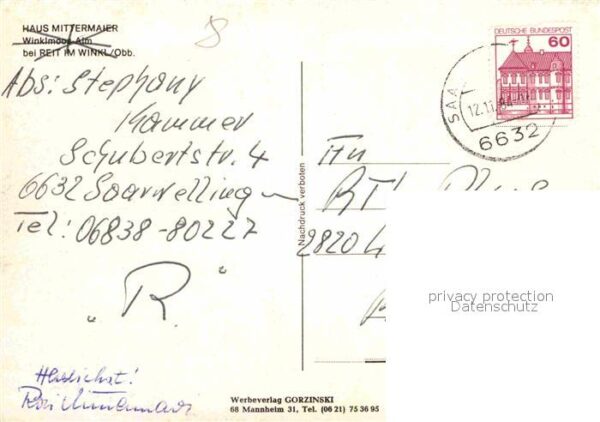 HAUS MITTERMAIER
Winklmoos Alm
bei REIT IM WINKL/Obb.
8
Abs: Stephany
Kammer
Schubertstr. 4
6632 Saarwelling
Tel: 06838-80227
"R"
Herzlichst!
DEUTSCHE BUNDESPOST
60
SAA
12.11.84
6632
An
RTL Plus
2820
Nachdruck verboten
Werbeverlag GORZINSKI
68 Mannheim 31, Tel. (06 21) 75 36 95
privacy protection
Datenschutz